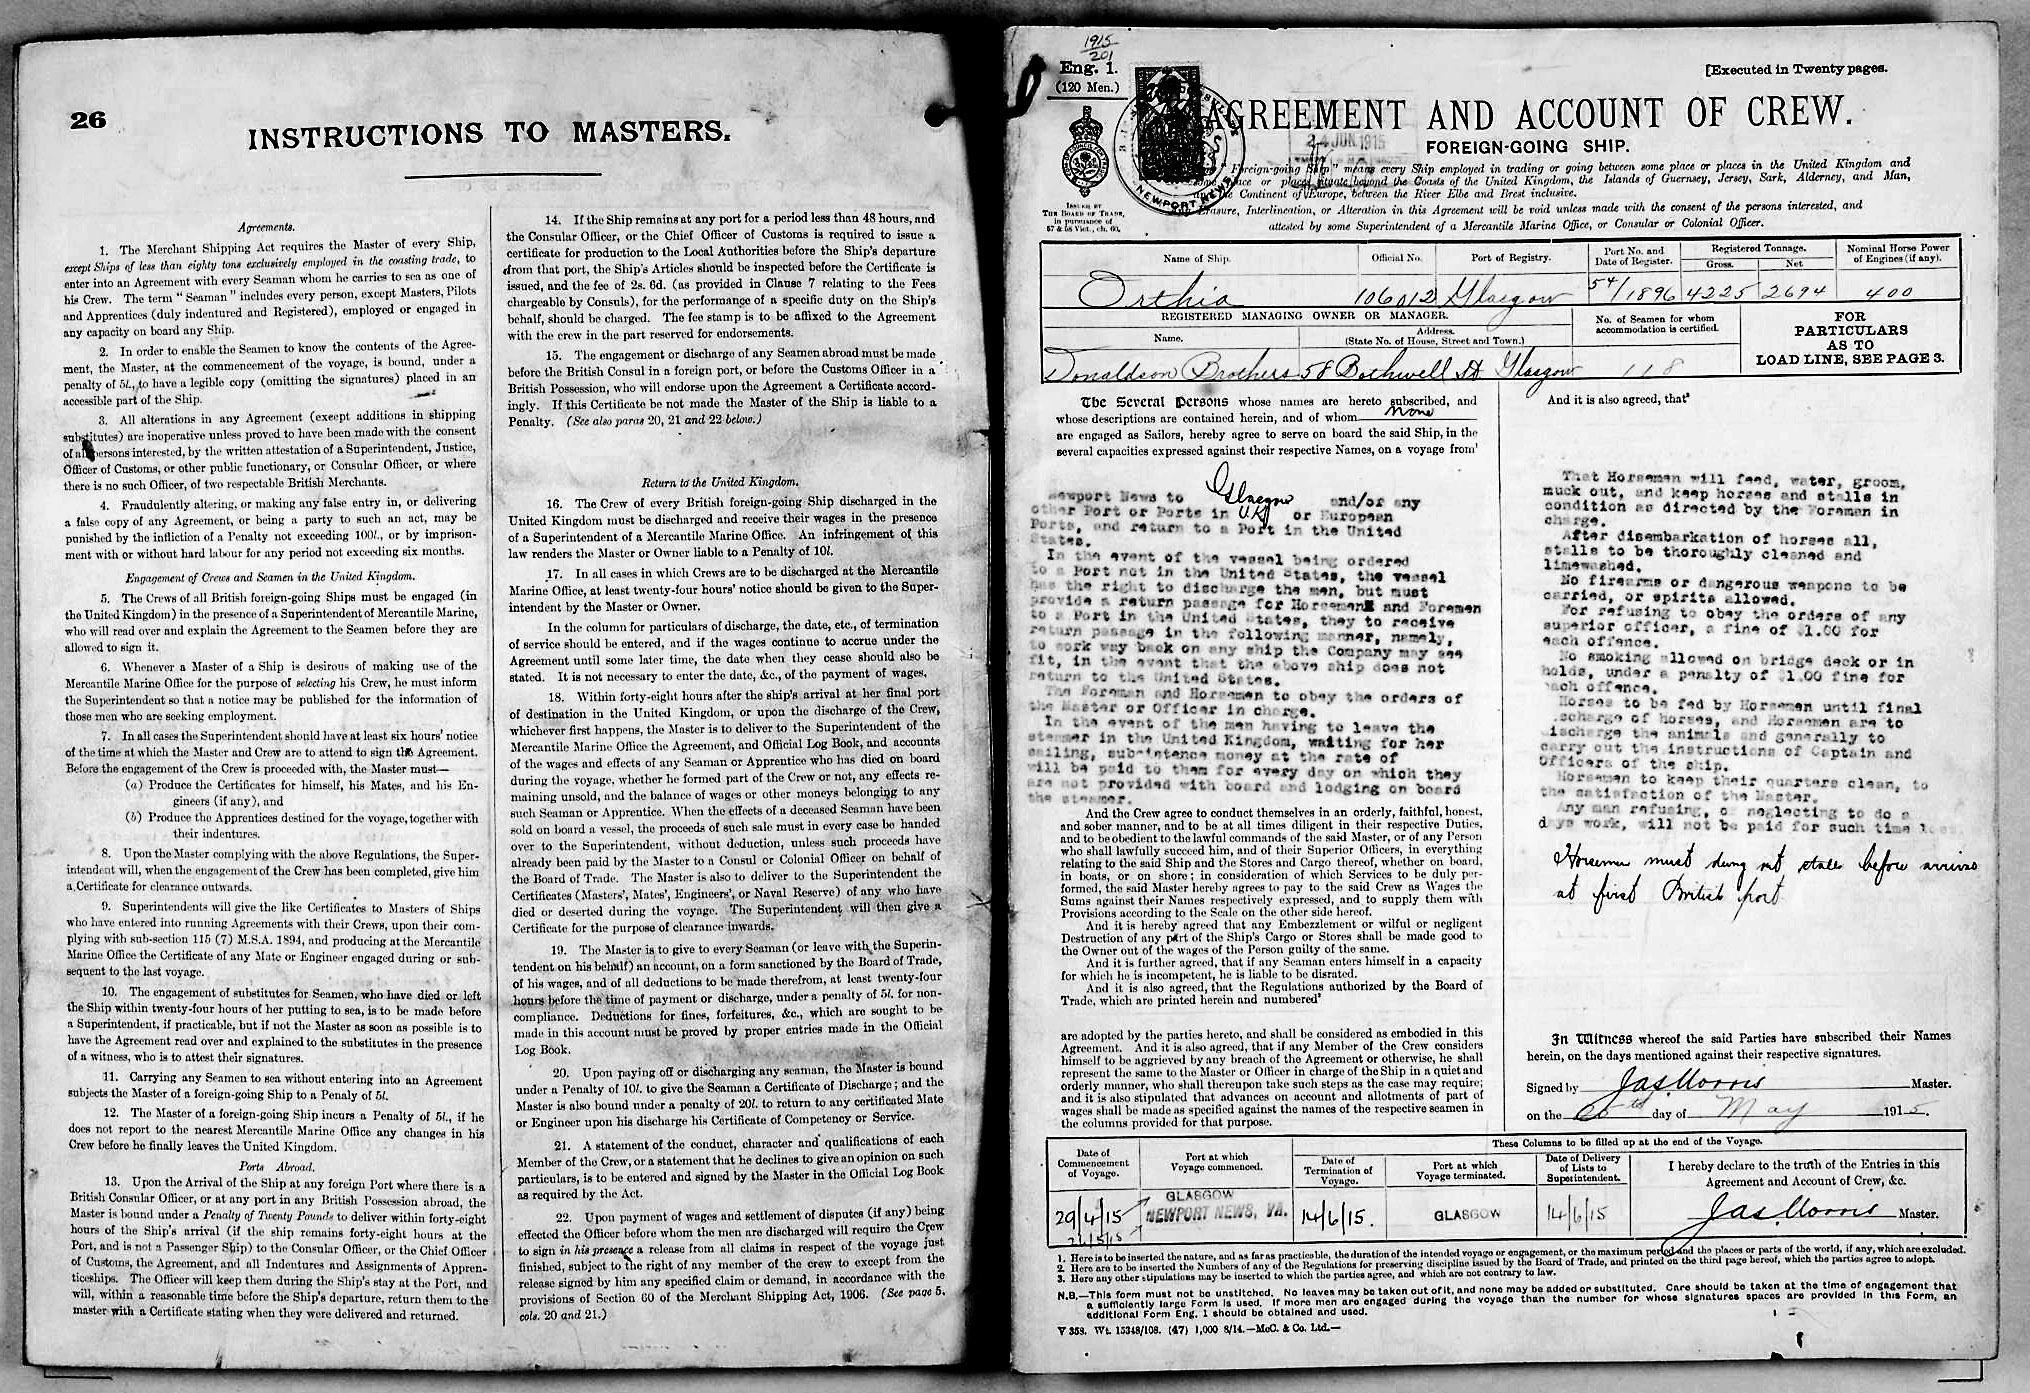 26
INSTRUCTIONS TO MASTERS.
Agreements.
1. The Merchant Shipping Act requires the Master of every Ship,
except Ships of less than eighty tons exclusively employed in the coasting trade, to
enter into an Agreement with every Seaman whom he carries to sea as one of
his Crew. The term "Seaman" includes every person, except Masters, Pilots
and Apprentices (duly indentured and Registered), employed or engaged in
any capacity on board any Ship.
2. In order to enable the Seamen to know the contents of the Agree-
ment, the Master, at the commencement of the voyage, is bound, under a
penalty of 5l., to have a legible copy (omitting the signatures) placed in an
accessible part of the Ship.
3. All alterations in any Agreement (except additions in shipping
substitutes) are inoperative unless proved to have been made with the consent
of all persons interested, by the written attestation of a Superintendent, Justice,
Officer of Customs, or other public functionary, or Consular Officer, or where
there is no such Officer, of two respectable British Merchants.
4. Fraudulently altering, or making any false entry in, or delivering
a false copy of any Agreement, or being a party to such an act, may be
punished by the infliction of a Penalty not exceeding 100l., or by imprison-
ment with or without hard labour for any period not exceeding six months.
Engagement of Crews and Seamen in the United Kingdom.
5. The Crews of all British foreign-going Ships must be engaged (in
the United Kingdom) in the presence of a Superintendent of Mercantile Marine,
who will read over and explain the Agreement to the Seamen before they are
allowed to sign it.
6. Whenever a Master of a Ship is desirous of making use of the
Mercantile Marine Office for the purpose of selecting his Crew, he must inform
the Superintendent so that a notice may be published for the information of
those men who are seeking employment.
7. In all cases the Superintendent should have at least six hours' notice
of the time at which the Master and Crew are to attend to sign the Agreement.
Before the engagement of the Crew is proceeded with, the Master must—
(a) Produce the Certificates for himself, his Mates, and his En-
gineers (if any), and
(b) Produce the Apprentices destined for the voyage, together with
their indentures.
8. Upon the Master complying with the above Regulations, the Super-
intendent will, when the engagement of the Crew has been completed, give him
a Certificate for clearance outwards.
9. Superintendents will give the like Certificates to Masters of Ships
who have entered into running Agreements with their Crews, upon their com-
plying with sub-section 115 (7) M.S.A. 1894, and producing at the Mercantile
Marine Office the Certificate of any Mate or Engineer engaged during or sub-
sequent to the last voyage.
10. The engagement of substitutes for Seamen, who have died or left
the Ship within twenty-four hours of her putting to sea, is to be made before
a Superintendent, if practicable, but if not the Master as soon as possible is to
have the Agreement read over and explained to the substitutes in the presence
of a witness, who is to attest their signatures.
11. Carrying any Seamen to sea without entering into an Agreement
subjects the Master of a foreign-going Ship to a Penaly of 5l.
12. The Master of a foreign-going Ship incurs a Penalty of 5l., if he
does not report to the nearest Mercantile Marine Office any changes in his
Crew before he finally leaves the United Kingdom.
Ports Abroad.
13. Upon the Arrival of the Ship at any foreign Port where there is a
British Consular Officer, or at any port in any British Possession abroad, the
Master is bound under a Penalty of Twenty Pounds to deliver within forty-eight
hours of the Ship's arrival (if the ship remains forty-eight hours at the
Port, and is not a Passenger Ship) to the Consular Officer, or the Chief Officer
of Customs, the Agreement, and all Indentures and Assignments of Appren-
ticeships. The Officer will keep them during the Ship's stay at the Port, and
will, within a reasonable time before the Ship's departure, return them to the
master with a Certificate stating when they were delivered and returned.
14. If the Ship remains at any port for a period less than 48 hours, and
the Consular Officer, or the Chief Officer of Customs is required to issue a
certificate for production to the Local Authorities before the Ship's departure
from that port, the Ship's Articles should be inspected before the Certificate is
issued, and the fee of 2s. 6d. (as provided in Clause 7 relating to the Fees
chargeable by Consuls), for the performance of a specific duty on the Ship's
behalf, should be charged. The fee stamp is to be affixed to the Agreement
with the crew in the part reserved for endorsements.
15. The engagement or discharge of any Seamen abroad must be made
before the British Consul in a foreign port, or before the Customs Officer in a
British Possession, who will endorse upon the Agreement a Certificate accord-
ingly. If this Certificate be not made the Master of the Ship is liable to a
Penalty. (See also paras 20, 21 and 22 below.)
Return to the United Kingdom.
16. The Crew of every British foreign-going Ship discharged in the
United Kingdom must be discharged and receive their wages in the presence
of a Superintendent of a Mercantile Marine Office. An infringement of this
law renders the Master or Owner liable to a Penalty of 10l.
17. In all cases in which Crews are to be discharged at the Mercantile
Marine Office, at least twenty-four hours' notice should be given to the Super-
intendent by the Master or Owner.
In the column for particulars of discharge, the date, etc., of termination
of service should be entered, and if the wages continue to accrue under the
Agreement until some later time, the date when they cease should also be
stated. It is not necessary to enter the date, &c., of the payment of wages.
18. Within forty-eight hours after the ship's arrival at her final port
of destination in the United Kingdom, or upon the discharge of the Crew,
whichever first happens, the Master is to deliver to the Superintendent of the
Mercantile Marine Office the Agreement, and Official Log Book, and accounts
of the wages and effects of any Seaman or Apprentice who has died on board
during the voyage, whether he formed part of the Crew or not, any effects re-
maining unsold, and the balance of wages or other moneys belonging to any
such Seaman or Apprentice. When the effects of a deceased Seaman have been
sold on board a vessel, the proceeds of such sale must in every case be handed
over to the Superintendent, without deduction, unless such proceeds have
already been paid by the Master to a Consul or Colonial Officer on behalf of
the Board of Trade. The Master is also to deliver to the Superintendent the
Certificates (Masters', Mates', Engineers', or Naval Reserve) of any who have
died or deserted during the voyage. The Superintendent will then give a
Certificate for the purpose of clearance inwards.
19. The Master is to give to every Seaman (or leave with the Superin-
tendent on his behalf) an account, on a form sanctioned by the Board of Trade,
of his wages, and of all deductions to be made therefrom, at least twenty-four
hours before the time of payment or discharge, under a penalty of 5l. for non-
compliance. Deductions for fines, forfeitures, &c., which are sought to be
made in this account must be proved by proper entries made in the Official
Log Book.
20. Upon paying off or discharging any seaman, the Master is bound
under a Penalty of 10l. to give the Seaman a Certificate of Discharge; and the
Master is also bound under a penalty of 20l. to return to any certificated Mate
or Engineer upon his discharge his Certificate of Competency or Service.
21. A statement of the conduct, character and qualifications of each
Member of the Crew, or a statement that he declines to give an opinion on such
particulars, is to be entered and signed by the Master in the Official Log Book
as required by the Act.
22. Upon payment of wages and settlement of disputes (if any) being
effected the Officer before whom the men are discharged will require the Crew
to sign in his presence a release from all claims in respect of the voyage just
finished, subject to the right of any member of the crew to except from the
release signed by him any specified claim or demand, in accordance with the
provisions of Section 60 of the Merchant Shipping Act, 1906. (See page 5,
cols. 20 and 21.)
1915
201
Eng. 1.
(120 Men.)
[Executed in Twenty pages.
AGREEMENT AND ACCOUNT OF CREW.
24 JUN 1915
FOREIGN-GOING SHIP.
NEWPORT NEWS
ISSUED BY
THE BOARD OF TRADE,
in pursuance of
57 & 58 Vict., ch. 60.
Foreign-going Ship" means every Ship employed in trading or going between some place or places in the United Kingdom and
some place or places situate beyond the Coasts of the United Kingdom, the Islands of Guernsey, Jersey, Sark, Alderney, and Man,
the Continent of Europe, between the River Elbe and Brest inclusive.
Erasure, Interlineation, or Alteration in this Agreement will be void unless made with the consent of the persons interested, and
attested by some Superintendent of a Mercantile Marine Office, or Consular or Colonial Officer.
Name of Ship. Official No. Port of Registry. Port No. and Date of Register. Registered Tonnage. Gross. Net. Nominal Horse Power of Engines (if any).
Orthia 106012 Glasgow 54/1896 4225 2694 400
REGISTERED MANAGING OWNER OR MANAGER.
Name. Address. (State No. of House, Street and Town.) No. of Seamen for whom accommodation is certified.
Donaldson Brothers 58 Bothwell St Glasgow 118
FOR
PARTICULARS
AS TO
LOAD LINE, SEE PAGE 3.
The Several Persons whose names are hereto subscribed, and
whose descriptions are contained herein, and of whom none
are engaged as Sailors, hereby agree to serve on board the said Ship, in the
several capacities expressed against their respective Names, on a voyage from¹
Newport News to Glasgow and/or any
other Port or Ports in U.K. or European
Ports, and return to a Port in the United
States.
In the event of the vessel being ordered
to a Port not in the United States, the vessel
has the right to discharge the men, but must
provide a return passage for Horsemen and Foremen
to a Port in the United States, they to receive
return passage in the following manner, namely,
to work way back on any ship the Company may see
fit, in the event that the above ship does not
return to the United States.
The Foreman and Horsemen to obey the orders of
the Master or Officer in charge.
In the event of the men having to leave the
steamer in the United Kingdom, waiting for her
sailing, subsistence money at the rate of
will be paid to them for every day on which they
are not provided with board and lodging on board
the steamer.
And the Crew agree to conduct themselves in an orderly, faithful, honest,
and sober manner, and to be at all times diligent in their respective Duties,
and to be obedient to the lawful commands of the said Master, or of any Person
who shall lawfully succeed him, and of their Superior Officers, in everything
relating to the said Ship and the Stores and Cargo thereof, whether on board,
in boats, or on shore; in consideration of which Services to be duly per-
formed, the said Master hereby agrees to pay to the said Crew as Wages the
Sums against their Names respectively expressed, and to supply them with
Provisions according to the Scale on the other side hereof.
And it is hereby agreed that any Embezzlement or wilful or negligent
Destruction of any part of the Ship's Cargo or Stores shall be made good to
the Owner out of the wages of the Person guilty of the same.
And it is further agreed, that if any Seaman enters himself in a capacity
for which he is incompetent, he is liable to be disrated.
And it is also agreed, that the Regulations authorized by the Board of
Trade, which are printed herein and numbered²
are adopted by the parties hereto, and shall be considered as embodied in this
Agreement. And it is also agreed, that if any Member of the Crew considers
himself to be aggrieved by any breach of the Agreement or otherwise, he shall
represent the same to the Master or Officer in charge of the Ship in a quiet and
orderly manner, who shall thereupon take such steps as the case may require;
and it is also stipulated that advances on account and allotments of part of
wages shall be made as specified against the names of the respective seamen in
the columns provided for that purpose.
And it is also agreed, that³
That Horsemen will feed, water, groom,
muck out, and keep horses and stalls in
condition as directed by the Foreman in
charge.
After disembarkation of horses all,
stalls to be thoroughly cleaned and
limewashed.
No firearms or dangerous weapons to be
carried, or spirits allowed.
For refusing to obey the orders of any
superior officer, a fine of $1.00 for
each offence.
No smoking allowed on bridge deck or in
holds, under a penalty of $1.00 fine for
each offence.
Horses to be fed by Horsemen until final
discharge of horses, and Horsemen are to
discharge the animals and generally to
carry out the instructions of Captain and
Officers of the ship.
Horsemen to keep their quarters clean, to
the satisfaction of the Master.
Any man refusing, or neglecting to do a
days work, will not be paid for such time
Horsemen must dung out stalls before
at first British port
In Witness whereof the said Parties have subscribed their Names
herein, on the days mentioned against their respective signatures.
Signed by Jas Morris Master.
on the day of May 1915.
These Columns to be filled up at the end of the Voyage.
Date of Commencement of Voyage. Port at which Voyage commenced. Date of Termination of Voyage. Port at which Voyage terminated. Date of Delivery of Lists to Superintendent. I hereby declare to the truth of the Entries in this Agreement and Account of Crew, &c.
29/4/15 GLASGOW NEWPORT NEWS, VA. 14/6/15. GLASGOW 14/6/15 Jas. Morris Master.
1. Here is to be inserted the nature, and as far as practicable, the duration of the intended voyage or engagement, or the maximum period and the places or parts of the world, if any, which are excluded.
2. Here are to be inserted the Numbers of any of the Regulations for preserving discipline issued by the Board of Trade, and printed on the third page hereof, which the parties agree to adopt.
3. Here any other stipulations may be inserted to which the parties agree, and which are not contrary to law.
N.B.—This form must not be unstitched. No leaves may be taken out of it, and none may be added or substituted. Care should be taken at the time of engagement that
a sufficiently large Form is used. If more men are engaged during the voyage than the number for whose signatures spaces are provided in this Form, an
additional Form Eng. 1 should be obtained and used.
V 358. Wt. 15348/108. (47) 1,000 8/14.—McC. & Co. Ltd.—